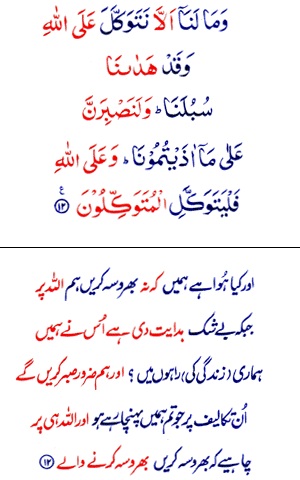 وَمَا لَنَاۤ اَلَّا نَتَوَكَّلَ عَلَى اللّٰهِ
وَقَدْ هَدٰىنَا
سُبُلَنَا ؕ وَلَنَصْبِرَنَّ
عَلٰى مَاۤ اٰذَيْتُمُوْنَا ؕ وَعَلَى اللّٰهِ
فَلْيَتَوَكَّلِ الْمُتَوَكِّلُوْنَ ﴿۱۲﴾ ع
اور کیا ہُوا ہے ہمیں کہ نہ بھروسہ کریں ہم اللہ پر
جبکہ بے شک ہدایت دی ہے اُس نے ہمیں
ہماری (زندگی کی) راہوں میں ؟ اور ہم ضرور صبر کریں گے
اُن تکالیف پر جو تم ہمیں پہنچا رہے ہو اور اللہ ہی پر
چاہیے کہ بھروسہ کریں بھروسہ کرنے والے ﴿۱۲﴾